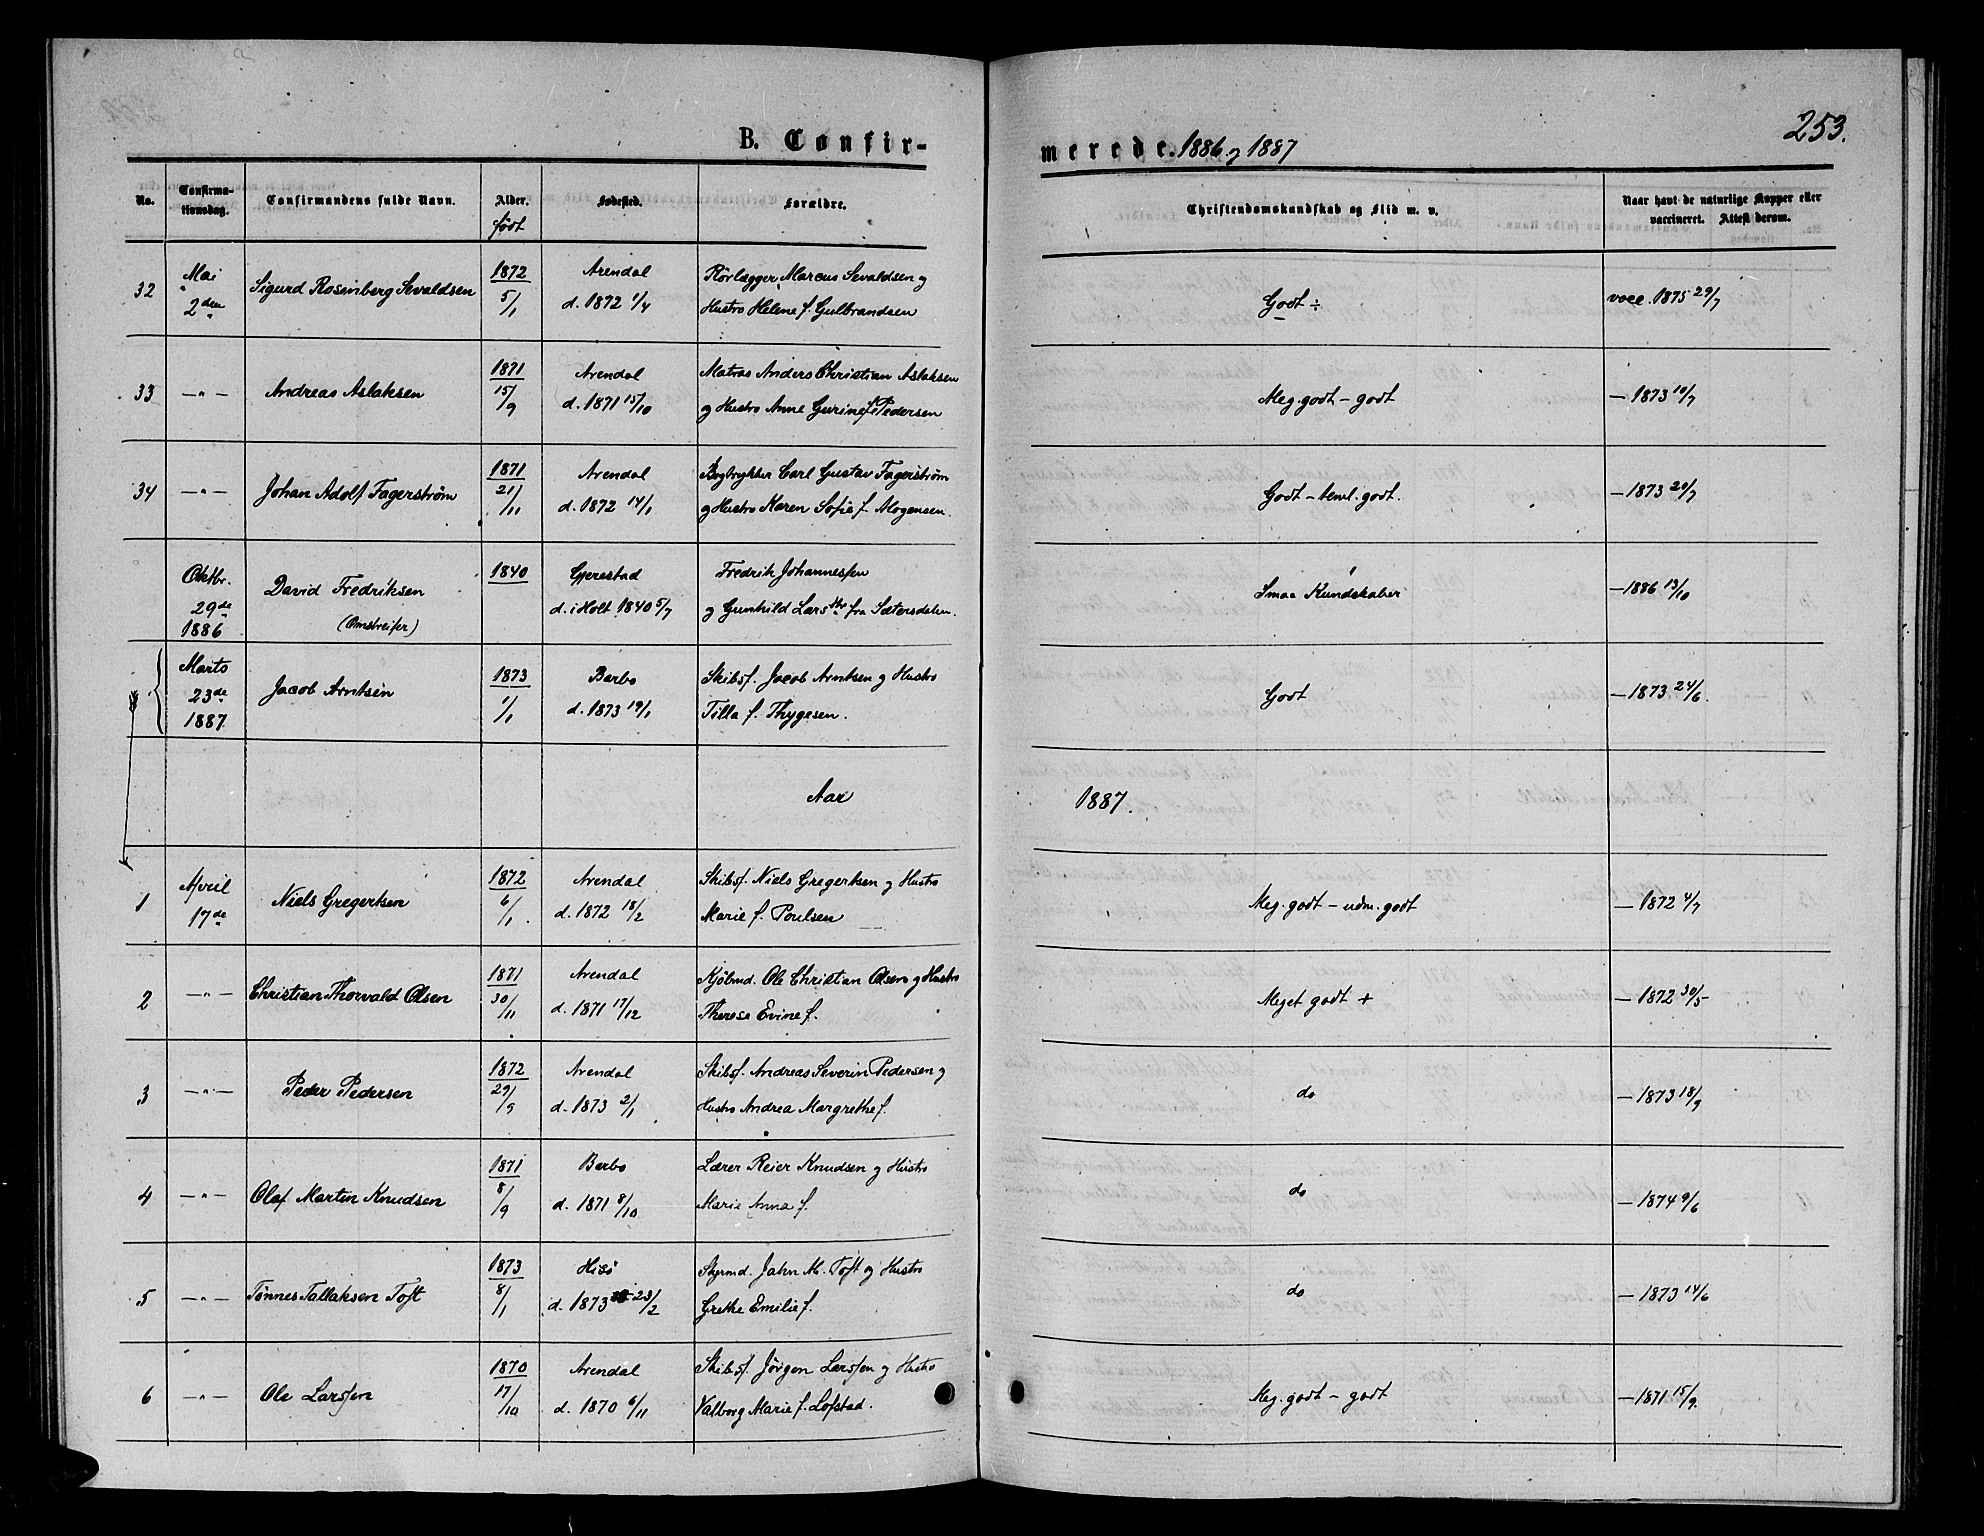 253.
B. Confir-
merede. 1886 og 1887
No.
Confirma-
tionsdag.
Confirmandens fulde Navn.
Alder.
født
Fødested.
Forældre.
Christendomskundskab og Flid m. v.
Naar havt de naturlige Kopper eller
vaccineret. Attest derom.
32
Mai
2den
Sigurd Rosinberg Sevaldsen
1872
5/1
Arendal
d. 1872 1/4
Rörlægger Marcus Sevaldsen og
Hustro Helene f. Gulbrandsen
Godt ÷
vacc. 1875 29/7
33
—"—
Andreas Aslaksen
1871
15/9
Arendal
d. 1871 15/10
Matros Anders Christian Aslaksen
og Hustro Anne Gurine f. Pedersen
Meg. godt – godt
— 1873 10/7
34
—"—
Johan Adolf Fagerstrøm
1871
21/11
Arendal
d. 1872 14/1
Bogtrykker Carl Gustav Fagerstrøm
og Hustro Karen Sofie f. Mogensen.
Godt – teml. godt.
— 1873 29/7
Oktbr.
29de
1886
David Fredriksen
(Omstreifer)
1840
Gjerestad
d. i Holt 1840 5/7
Fredrik Johannessen
og Gunhild Larsdtr fra Sætersdalen.
Smaa Kundskaber
— 1886 13/10
Marts
23de
1887
Jacob Arntsen
1873
1/1
Barbo
d. 1873 19/1
Skibsf. Jacob Arntsen og Hustro
Tilla f. Thygesen.
Godt
— 1873 24/6.
Aar
1887.
1
April
17de
Niels Gregertsen
1872
6/1
Arendal
d. 1872 18/2
Skibsf. Niels Gregertsen og Hustro
Marie f. Poulsen
Meg. godt – udm. godt
— 1872 4/7
2
—"—
Christian Thorvald Olsen
1871
30/11
Arendal
d. 1871 17/12
Kjöbmd. Ole Christian Olsen og Hustro
Therese Evine f.
Meget godt +
— 1872 30/5
3
—"—
Peder Pedersen
1872
29/9
Arendal
d. 1873 2/1
Skibsf. Andreas Severin Pedersen og
Hustro Andrea Margrethe f.
do
— 1873 18/9
4
—"—
Olaf Martin Knudsen
1871
8/9
Barbo
d. 1871 8/10
Lærer Reier Knudsen og Hustro
Marie Anna f.
do
— 1874 9/6
5
—"—
Tönnes Tallaksen Toft
1873
8/1
Hisö
d. 1873 23/2
Styrmd. Jahn M. Toft og Hustro
Grethe Emilie f.
do
— 1873 14/6
6
—"—
Ole Larssen
1870
17/10
Arendal
d. 1870 6/11
Skibsf. Jörgen Larssen og Hustro
Valborg Marie f. Lofstad.
Meg. godt – godt
— 1871 15/9.